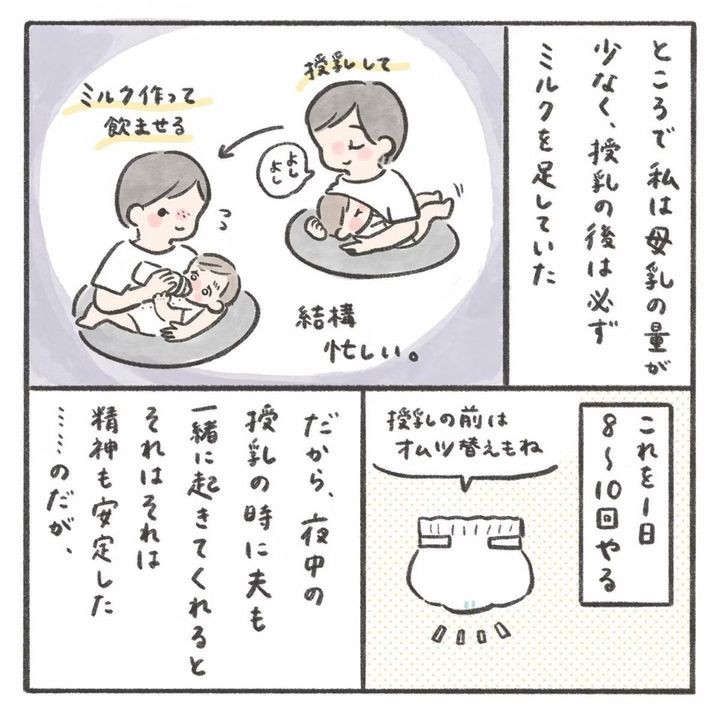 ところで私は母乳の量が
少なく、授乳の後は必ず
ミルクを足していた
授乳して
よし
よし
ミルク作って
飲ませる
結構
忙しい。
これを1日
8〜10回やる
授乳の前は
オムツ替えもね
だから、夜中の
授乳の時に夫も
一緒に起きてくれると
それはそれは
精神も安定した
……のだが、